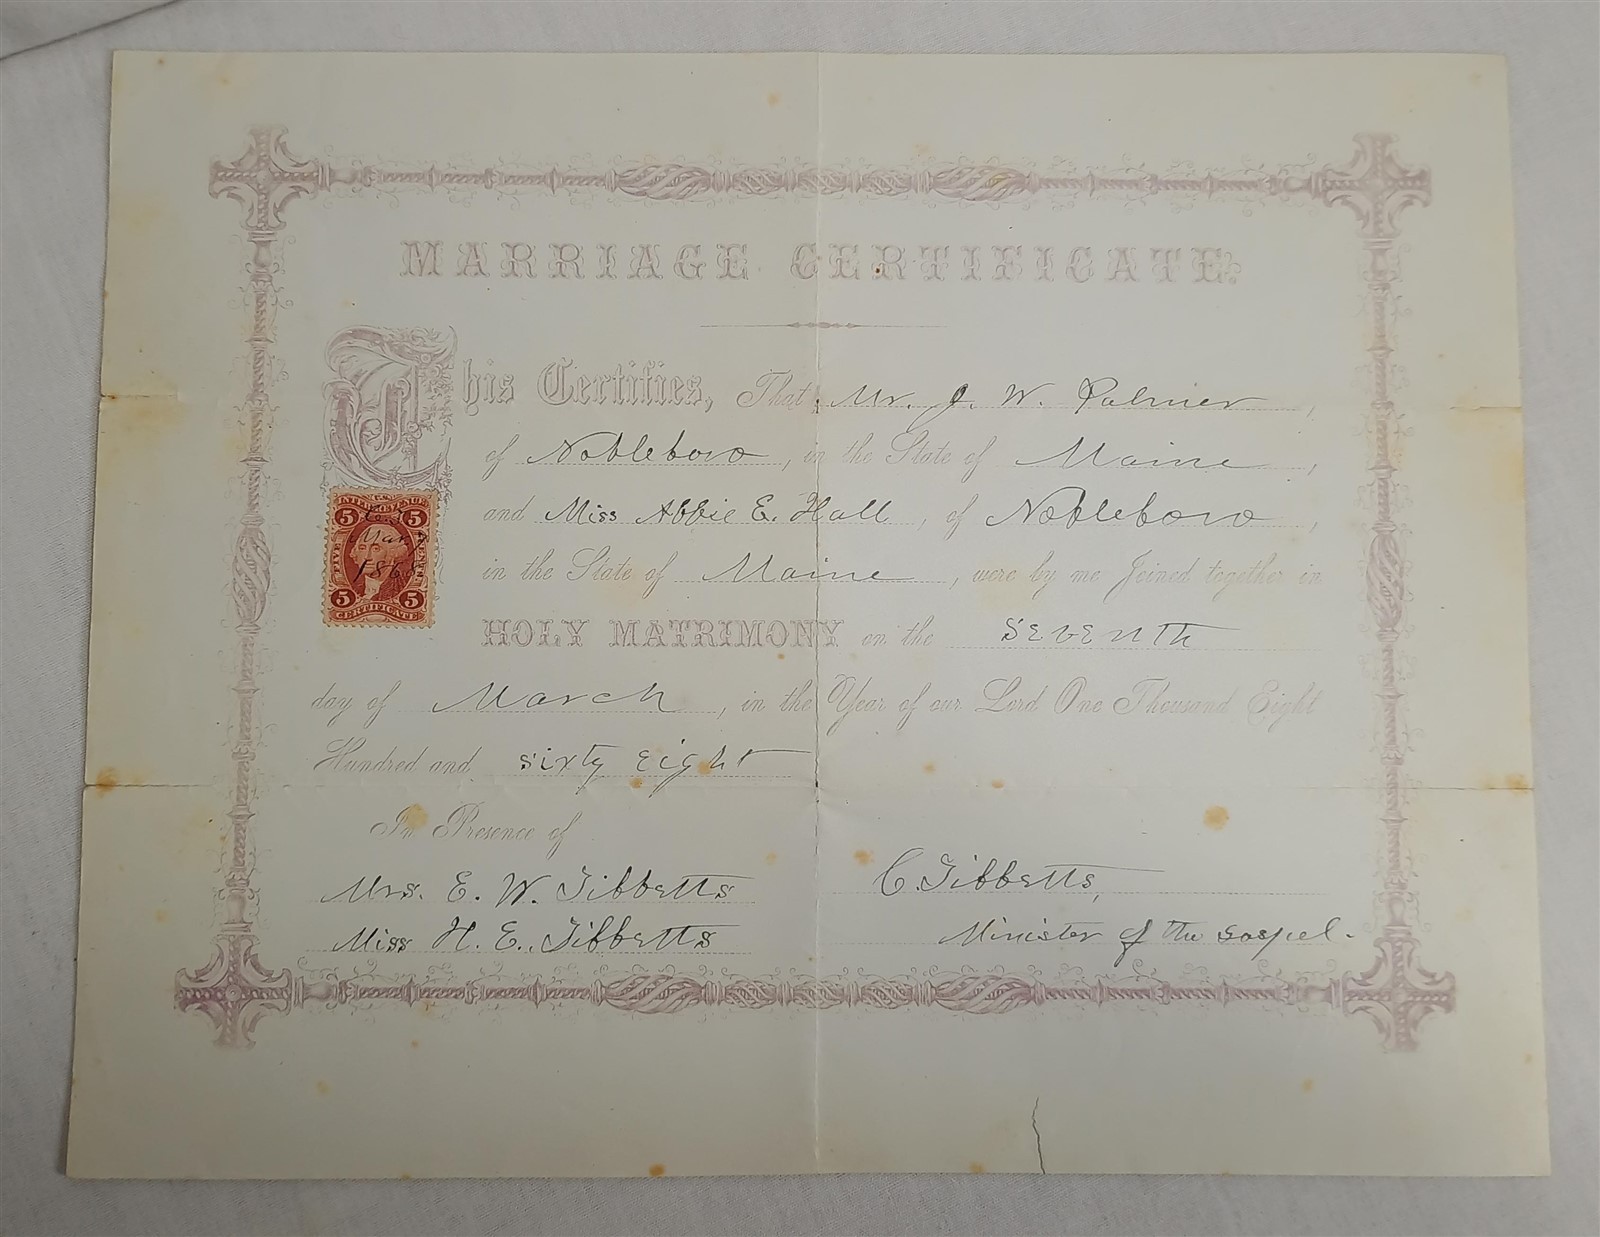 MARRIAGE CERTIFICATE.
This Certifies, That Mr. J. W. Palmer,
of Nobleboro, in the State of Maine,
and Miss Abbie E. Hall, of Nobleboro,
in the State of Maine, were by me Joined together in
HOLY MATRIMONY on the Seventh
day of March, in the Year of our Lord One Thousand Eight
Hundred and sixty eight
In Presence of
Mrs. E. W. Tibbetts
Miss H. E. Tibbetts
C. Tibbetts,
Minister of the Gospel.
U.S.
INTER. REVENUE
5 5
Mar 7
1868
FIVE CENTS
5 5
CERTIFICATE